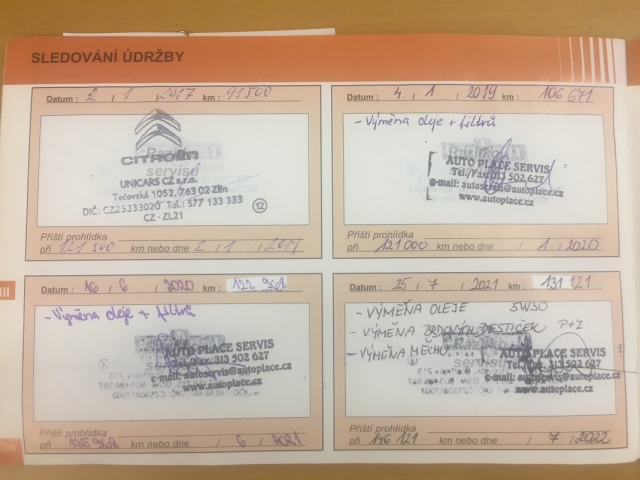 SLEDOVÁNÍ ÚDRŽBY
Datum : 2 / 1 / 2017 km : 91500
CITROËN
UNICARS CZ s.r.o.
Tečovská 1052, 763 02 Zlín
DIČ: CZ25333020 Tel.: 577 133 333
CZ - ZL21
12
Příští prohlídka
při 121 500 km nebo dne 2 / 1 /
Datum : 4 / 1 / 2019 km : 106 671
- Výměna oleje + filtrů
AUTO PLACE SERVIS
Tel./Fax: 313 502 627
e-mail: autoservis@autoplace.cz
www.autoplace.cz
Příští prohlídka
při 121000 km nebo dne / 1 / 2020
Datum : 16 / 6 / 2020 km : 122 968
- Výměna oleje + filtrů
AUTO PLACE SERVIS
Tel./Fax: 313 502 627
e-mail: autoservis@autoplace.cz
www.autoplace.cz
Příští prohlídka
při km nebo dne / 6 / 2021
Datum : 25 / 7 / 2021 km : 131 121
- VÝMĚNA OLEJE 5W30
- VÝMĚNA BRZDOVÝCH DESTIČEK P+Z
- VÝMĚNA MĚCHU
AUTO PLACE SERVIS
Tel./Fax: 313 502 627
e-mail: autoservis@autoplace.cz
www.autoplace.cz
Příští prohlídka
při 146 121 km nebo dne / 7 / 2022